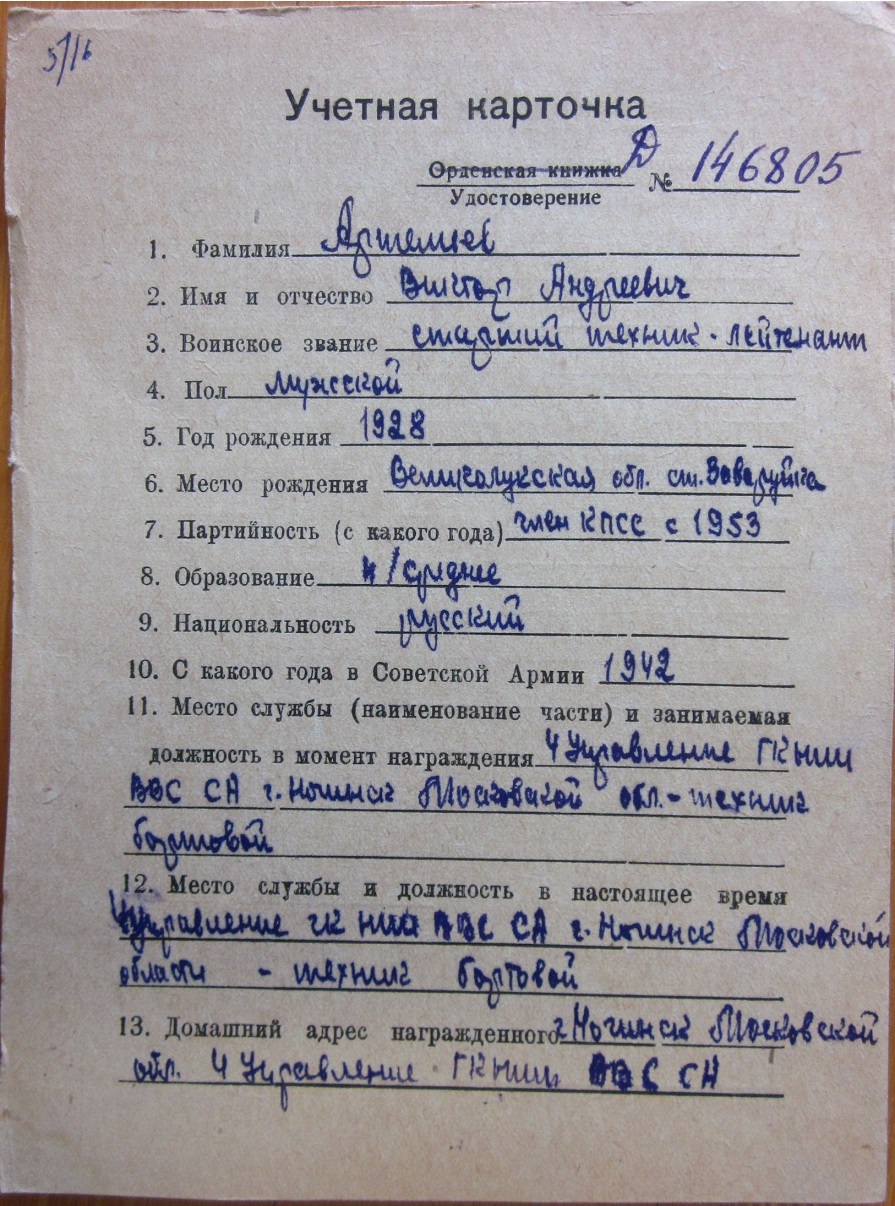 5/16
Учетная карточка
Орденская книжка Д № 146805
Удостоверение
1. Фамилия Артемьев
2. Имя и отчество Виктор Андреевич
3. Воинское звание старший техник-лейтенант
4. Пол мужской
5. Год рождения 1928
6. Место рождения Великолукская обл. ст.
7. Партийность (с какого года) член КПСС с 1953
8. Образование н/среднее
9. Национальность русский
10. С какого года в Советской Армии 1942
11. Место службы (наименование части) и занимаемая
должность в момент награждения 4 Управление ГК НИИ
ВВС СА г. Ногинск Московской обл. - техник
бортовой
12. Место службы и должность в настоящее время
4 Управление ГК НИИ ВВС СА г. Ногинск Московской
области - техник бортовой
13. Домашний адрес награжденного г. Ногинск Московской
обл. 4 Управление ГК НИИ ВВС СА